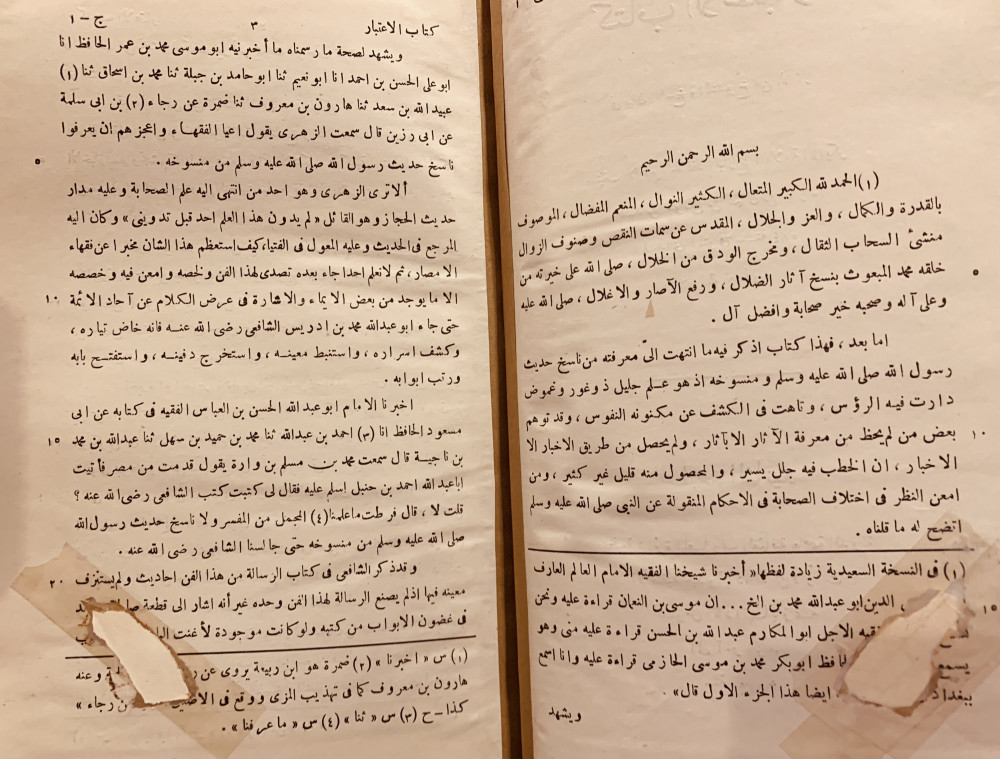 بسم الله الرحمن الرحيم
(١) الحمد لله الكبير المتعال، الكثير النوال، المنعم المفضال، الموصوف
بالقدرة والكمال، والعز والجلال، المقدس عن سمات النقص وصنوف الزوال
منشئ السحاب الثقال، ومخرج الودق من الخلال، صلى الله على خيرته من
خلقه محمد المبعوث بنسخ آثار الضلال، ورفع الآصار والاغلال، صلى الله عليه ٥
وعلى آله وصحبه خير صحابة وافضل آل.
اما بعد، فهذا كتاب اذكر فيه ما انتهت الىّ معرفته من ناسخ حديث
رسول الله صلى الله عليه وسلم ومنسوخه اذ هو علم جليل ذو غور وغموض
دارت فيه الرؤس، وتاهت فى الكشف عن مكنونه النفوس، وقد توهم
بعض من لم يحظ من معرفة الآثار الا بآثار، ولم يحصل من طريق الاخبار الا ١٠
الاخبار، ان الخطب فيه جلل يسير، والمحصول منه قليل غير كثير، ومن
امعن النظر فى اختلاف الصحابة فى الاحكام المنقولة عن النبى صلى الله عليه وسلم
اتضح له ما قلناه.
(١) فى النسخة السعيدية زيادة لفظها «أخبرنا شيخنا الفقيه الامام العالم العارف
الدين ابو عبدالله محمد بن الخ... ان موسى بن النعمان قراءة عليه ونحن ١٥
الاجل ابو المكارم عبدالله بن الحسن قراءة عليه منى وهو
يسمع ابوبكر محمد بن موسى الحازمى قراءة عليه وانا اسمع
ببغداد ايضا هذا الجزء الاول قال»
ويشهد
كتاب الاعتبار ٣ ج – ١
ويشهد لصحة ما رسمناه ما أخبرنيه ابو موسى محمد بن عمر الحافظ انا
ابو على الحسن بن احمد انا ابو نعيم ثنا ابو حامد بن جبلة ثنا محمد بن اسحاق ثنا (١)
عبيدالله بن سعد ثنا هارون بن معروف ثنا ضمرة عن رجاء (٢) بن ابى سلمة
عن ابى رزين قال سمعت الزهرى يقول اعيا الفقهاء واعجزهم ان يعرفوا
ناسخ حديث رسول الله صلى الله عليه وسلم من منسوخه. ٥
ألا ترى الزهرى وهو احد من انتهى اليه علم الصحابة وعليه مدار
حديث الحجاز وهو القائل «لم يدون هذا العلم احد قبل تدوينى» وكان اليه
المرجع فى الحديث وعليه المعول فى الفتيا، كيف استعظم هذا الشان مخبرا عن فقهاء
الامصار، ثم لا نعلم احدا جاء بعده تصدى لهذا الفن ولخصه وامعن فيه وخصصه
الا ما يوجد من بعض الايماء والاشارة فى عرض الكلام عن آحاد الائمة ١٠
حتى جاء ابو عبدالله محمد بن إدريس الشافعى رضى الله عنه فانه خاض تياره،
وكشف اسراره، واستنبط معينه، واستخرج دفينه، واستفتح بابه
ورتب ابوابه.
اخبرنا الامام ابو عبدالله الحسن بن العباس الفقيه فى كتابه عن ابى
مسعود الحافظ انا (٣) احمد بن عبدالله ثنا محمد بن حميد بن سهل ثنا عبدالله بن محمد ١٥
بن ناجية قال سمعت محمد بن مسلم بن وارة يقول قدمت من مصر فأتيت
اباعبدالله احمد بن حنبل اسلم عليه فقال لى كتبت كتب الشافعى رضى الله عنه؟
قلت لا، قال فرطت ما علمنا (٤) المجمل من المفسر ولا ناسخ حديث رسول الله
صلى الله عليه وسلم من منسوخه حتى جالسنا الشافعى رضى الله عنه.
وقد ذكر الشافعى فى كتاب الرسالة من هذا الفن احاديث ولم يستنزف ٢٠
معينه فيها اذ لم يضع الرسالة لهذا الفن وحده غير أنه اشار الى قطعة
فى غضون الابواب من كتبه ولو كانت موجودة لأغنت
(١) س «اخبرنا» (٢) ضمرة هو ابن ربيعة يروى عن وعنه
هارون بن معروف كما فى تهذيب المزى ووقع فى رجاء»
كذا – ح (٣) س «ثنا» (٤) س «ما عرفنا».